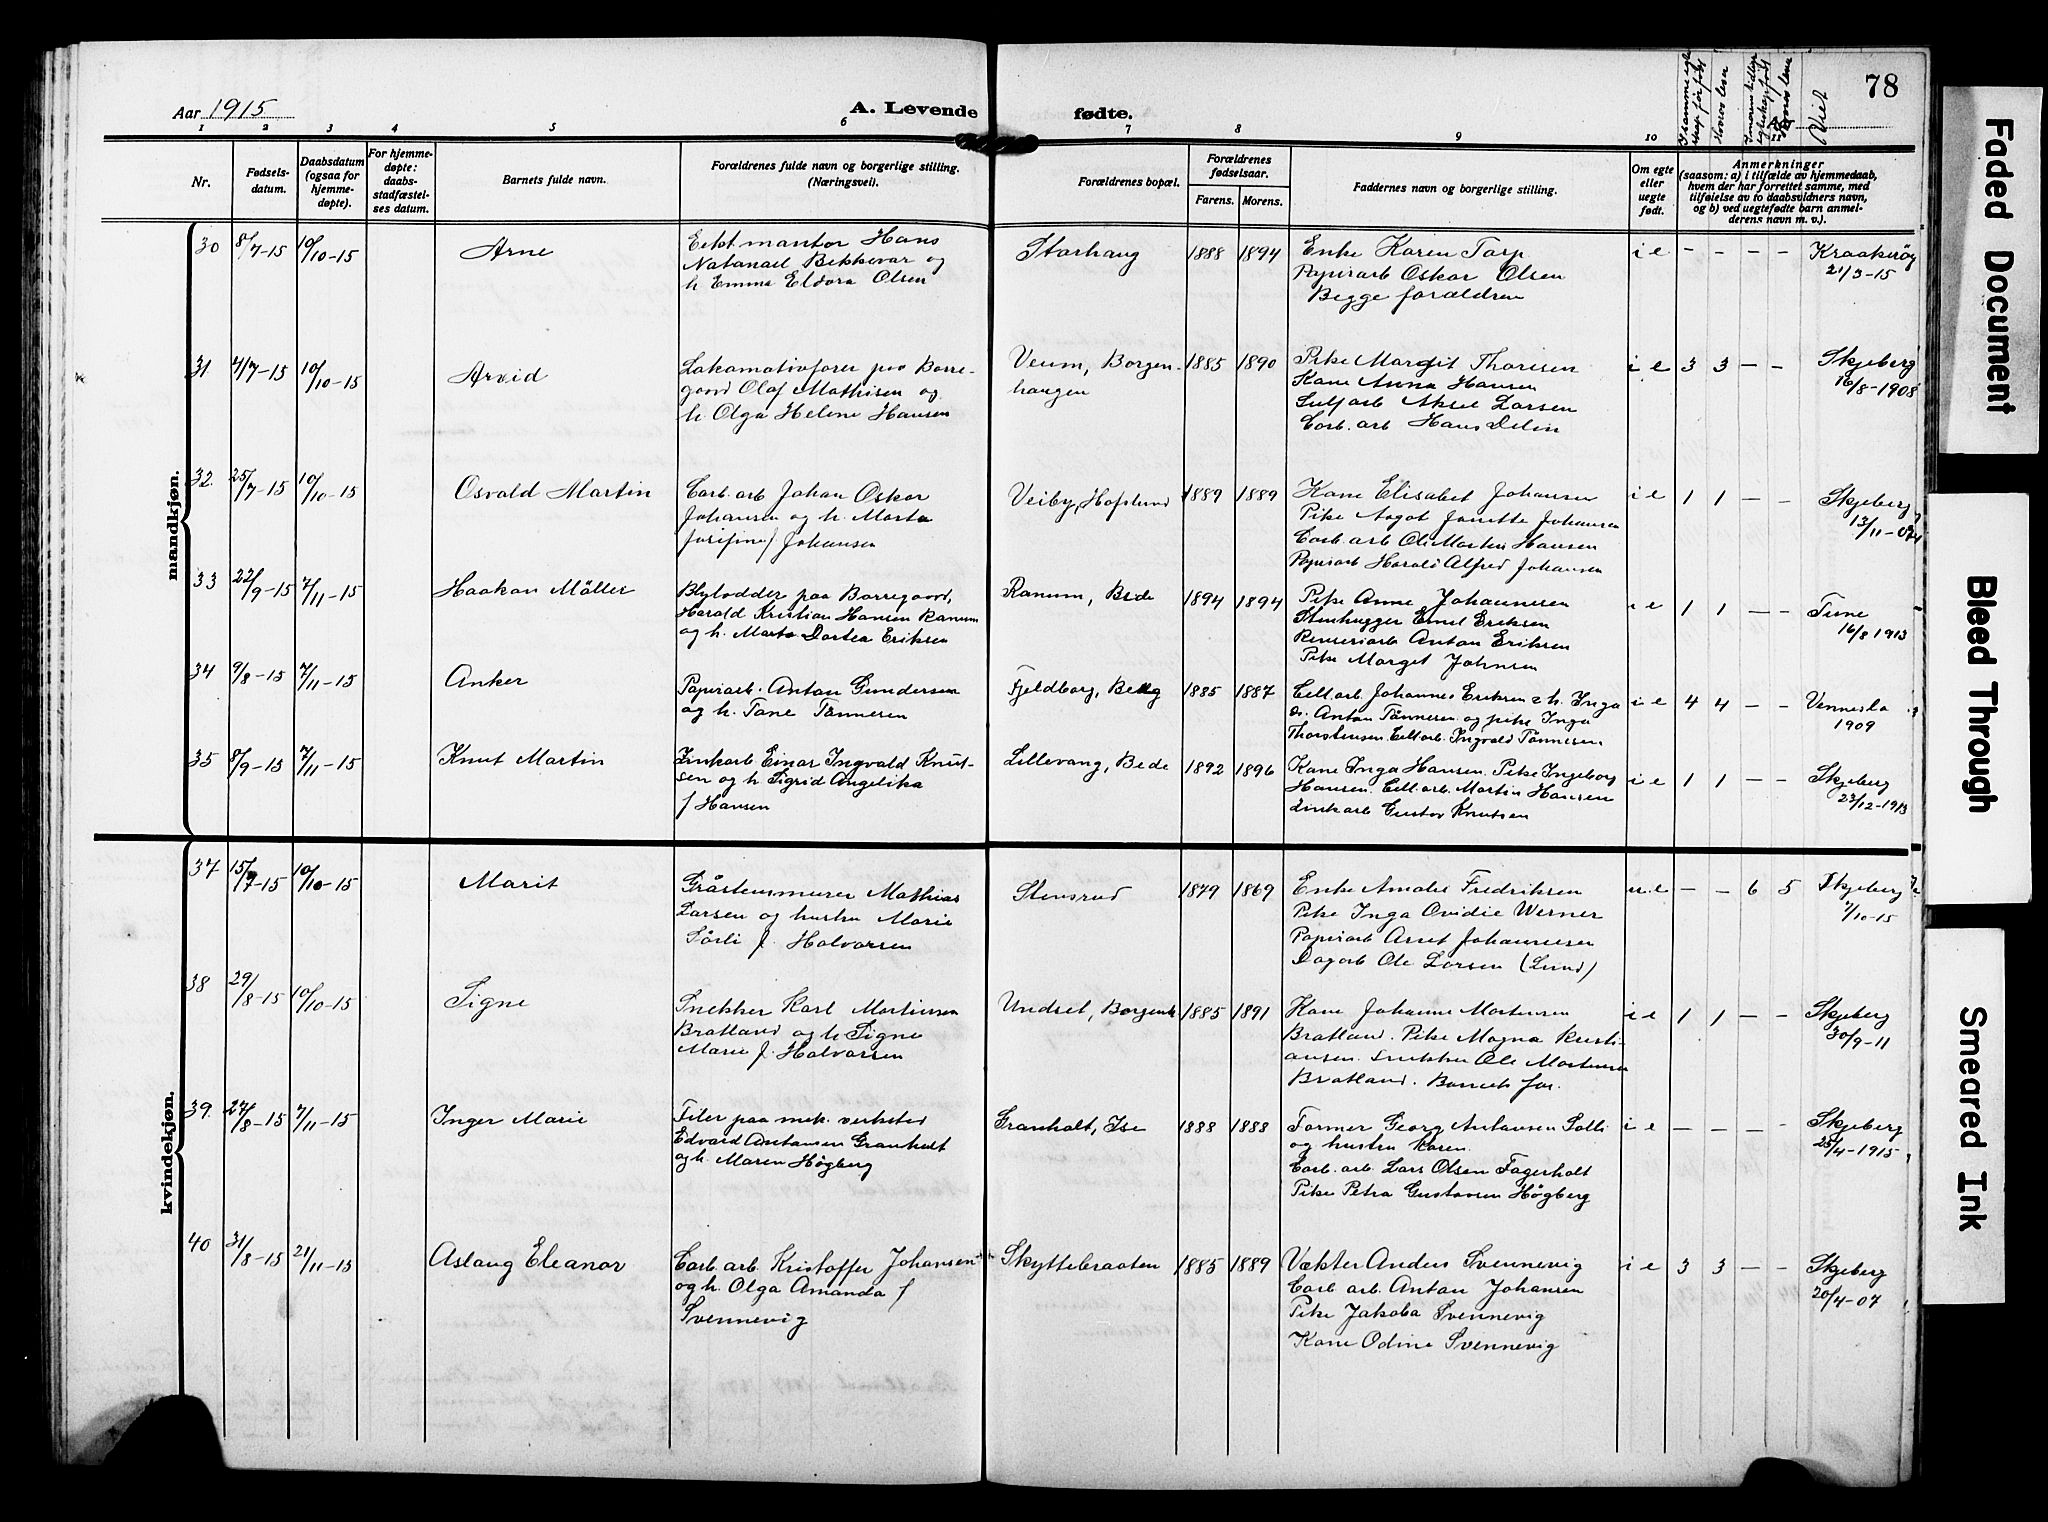 Aar 1915
A. Levende fødte.
78
Viet
1 2 3 4 5 6 7 8 9 10
Nr.
Fødsels-
datum.
Daabsdatum
(ogsaa for
hjemme-
døpte).
For hjemme-
døpte:
daabs-
stadfæstel-
ses datum.
Barnets fulde navn.
Forældrenes fulde navn og borgerlige stilling.
(Næringsvei).
Forældrenes bopæl.
Forældrenes
fødselsaar.
Farens. Morens.
Faddernes navn og borgerlige stilling.
Om egte
eller
uegte
født.
Anmerkninger
(saasom: a) i tilfælde av hjemmedaab,
hvem der har forrettet samme, med
tilføielse av to daabsvidners navn,
og b) ved uegtefødte barn anmel-
derens navn m. v.).
mandkjøn.
30 8/7-15 10/10-15 Arne
Hans
Natanael Bekkevar og
h Emma Eldora Olsen
Storhaug 1888 1894
Enke Karen Torp
Papirarb Oskar Olsen
Begge forældren
i e - - - - Kraakerøy
21/3-15
31 4/7-15 10/10-15 Arvid
Lokomotivfører paa Borre-
gaard Olaf Mathisen og
h. Olga Helene Hansen
Veum, Borgen-
haugen
1885 1890
Pike Margit Thoresen
Kone Anna Hansen
Sulfarb Aksel Larsen
Carb. arb Hans Delin
i e 3 3 - - Skjeberg
16/8-1908
32 25/7-15 10/10-15 Osvald Martin
Carb. arb Johan Oskar
Johansen og h. Marta
Josefine f Johansen
Veiby, Hafslund 1889 1889
Kone Elisabet Johansen
Pike Aagot Janette Johansen
Carb. arb Ole Martin Hansen
Papirarb Harald Alfred Johansen
i e 1 1 - - Skjeberg
33 22/9-15 7/11-15 Haakon Møller
Blylodder paa Borregaard,
Harald Kristian Hansen Ranum
og h. Marta Dortea Eriksen
Ranum, Bede 1894 1894
Pike Anne Johannesen
Stenhugger Emil Eriksen
Renseriarb Anton Eriksen
Pike Margit Johnsen
i e 1 1 - - Tune
16/8 1913
34 9/8-15 7/11-15 Anker
Papirarb. Anton Gundersen
og h. Tone Tønnesen
Fjeldborg, 1885 1887
Cell. arb. Johannes Eriksen & h. Inga
do. Anton Tønnesen og pike Inga
Thorstensen. Cell arb. Ingvald Tønnesen
i e 4 4 - - Vennesla
1909
35 8/9-15 7/11-15 Knut Martin
Zinkarb Einar Ingvald Knut-
sen og h Sigrid Angelika
f Hansen
Lillevang, Bede 1892 1896
Kone Inga Hansen. Pike Ingeborg
Hansen. Cell. arb. Martin Hansen
Zinkarb Gustav Knutsen
i e 1 1 - - Skjeberg
23/12-1913
kvindekjøn.
37 15/7-15 10/10-15 Marit
Gråstensmurer Mathias
Larsen og hustru Marie
Sørli f. Halvorsen
Stensrud 1879 1869
Enke Amalie Fredriksen
Pike Inga Ovidie Werner
Papirarb Arnt Johannesen
Dagarb Ole Larsen (Lund)
u. e - - 6 5 Skjeberg
7/10-15
38 29/8-15 10/10-15 Signe
Snekker Karl Martinsen
Bratland og h Signe
Marie f. Halvorsen
Undset, Borgenh 1885 1891
Kone Johanne Mortensen
Bratland. Pike Magna Kristi-
ansen. Snekker Ole Mortensen
Bratland. Barnets far.
i e 1 1 - - Skjeberg
30/9-11
39. 27/8-15 7/11-15 Inger Marie
Filer paa mek. verksted
Edvard Antonsen Granholt
og h. Maren Høgberg
Granholt, Ise 1888 1888
Former Georg Antonsen Solli
og hustru Karen.
Carb. arb. Lars Olsen Fagerholt
Pike Petra Gustavsen Høgberg
i e - - - - Skjeberg
25/4-1915
40 31/8-15 21/11-15 Aslaug Eleanor
Carb. arb. Kristoffer Johansen
og h. Olga Amanda f
Svennevig
Skyttebraaten 1885 1889
Vækter Anders Svennevig
Carb arb. Anton Johansen
Pike Jakoba Svennevig
Kone Odine Svennevig
i e 3 3 - - Skjeberg
20/4-07
Faded Document
Bleed Through
Smeared Ink